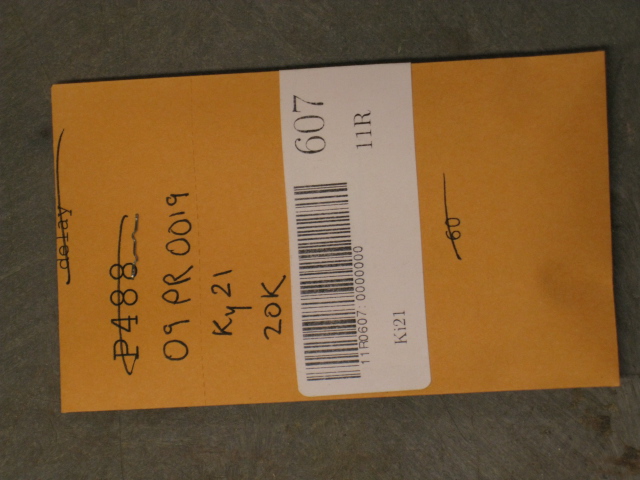 delay
P488
09PR0019
Ky21
20K
607
11R
11R0607:0000000
Ki21
60